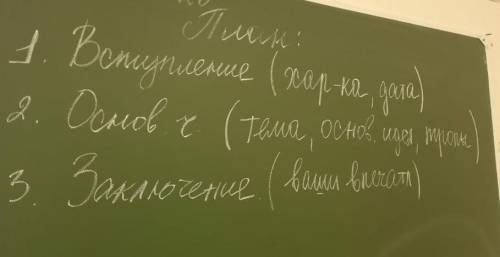 План:
1. Вступление (хар-ка, дата)
2. Основ. ч. (тема, основ. идея, тропы)
3. Заключение. (ваши впечатл)